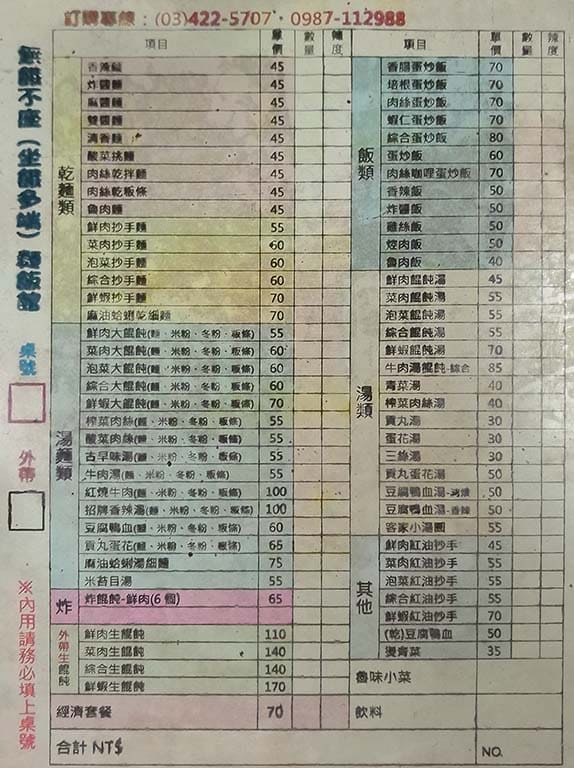 訂購專線：(03)422-5707・0987-112988
無餛不座（坐餛多端）麵飯館
桌號
外帶
※內用請務必填上桌號
項目 單價 數量 辣度
乾麵類
香辣麵 45
炸醬麵 45
麻醬麵 45
雙醬麵 45
清香麵 45
酸菜挑麵 45
肉絲乾拌麵 45
肉絲乾粄條 45
魯肉麵 45
鮮肉抄手麵 55
菜肉抄手麵 60
泡菜抄手麵 60
綜合抄手麵 60
鮮蝦抄手麵 70
麻油蛤蜊乾細麵 70
湯麵類
鮮肉大餛飩(麵、米粉、冬粉、粄條) 55
菜肉大餛飩(麵、米粉、冬粉、粄條) 60
泡菜大餛飩(麵、米粉、冬粉、粄條) 60
綜合大餛飩(麵、米粉、冬粉、粄條) 60
鮮蝦大餛飩(麵、米粉、冬粉、粄條) 70
榨菜肉絲(麵、米粉、冬粉、粄條) 55
酸菜肉絲(麵、米粉、冬粉、粄條) 55
古早味湯(麵、米粉、冬粉、粄條) 55
牛肉湯(麵、米粉、冬粉、粄條) 55
紅燒牛肉(麵、米粉、冬粉、粄條) 100
招牌香辣湯(麵、米粉、冬粉、粄條) 100
豆腐鴨血(麵、米粉、冬粉、粄條) 60
貢丸蛋花(麵、米粉、冬粉、粄條) 65
麻油蛤蜊湯細麵 75
米苔目湯 55
炸
炸餛飩-鮮肉(6個) 65
外帶生餛飩
鮮肉生餛飩 110
菜肉生餛飩 140
綜合生餛飩 140
鮮蝦生餛飩 170
經濟套餐 70
合計 NT$
項目 單價 數量 辣度
飯類
香腸蛋炒飯 70
培根蛋炒飯 70
肉絲蛋炒飯 70
蝦仁蛋炒飯 70
綜合蛋炒飯 80
蛋炒飯 60
肉絲咖哩蛋炒飯 70
香辣飯 50
炸醬飯 50
雞絲飯 50
焢肉飯 50
魯肉飯 40
湯類
鮮肉餛飩湯 45
菜肉餛飩湯 55
泡菜餛飩湯 55
綜合餛飩湯 55
鮮蝦餛飩湯 70
牛肉湯餛飩-綜合 85
青菜湯 40
榨菜肉絲湯 40
貢丸湯 30
蛋花湯 30
三絲湯 30
貢丸蛋花湯 50
豆腐鴨血湯-清燉 50
豆腐鴨血湯-香辣 50
客家小湯圓 55
其他
鮮肉紅油抄手 45
菜肉紅油抄手 55
泡菜紅油抄手 55
綜合紅油抄手 55
鮮蝦紅油抄手 70
(乾)豆腐鴨血 50
燙青菜 35
魯味小菜
飲料
NO.